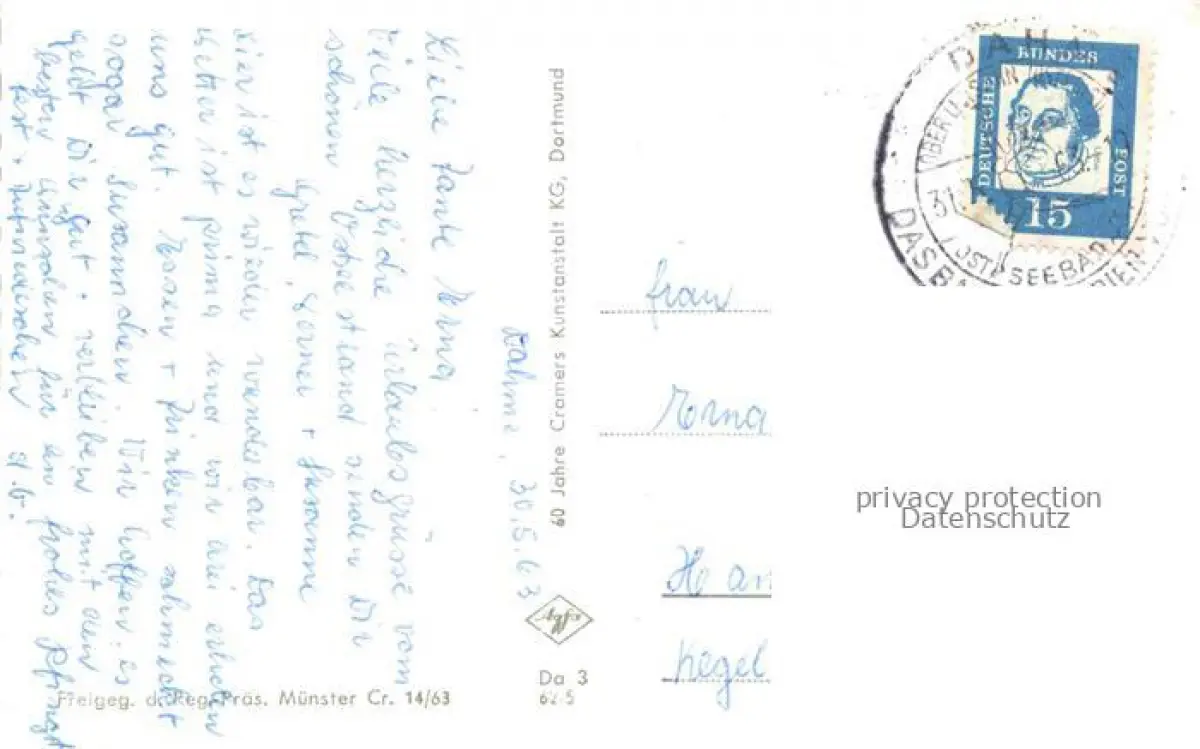 Dahme, 30.5.63
Liebe Tante Erna
Viele herzliche Urlaubsgrüsse vom
schönen Ostseestrand senden Dir
Gretel, Werner + Susanne
Hier ist es wieder wunderbar. Das
Wetter ist prima und wir drei erholen
uns gut. Essen + Trinken schmeckt
sogar Susannchen. Wir hoffen, es
geht Dir gut + verbleiben mit den
besten Wünschen für ein frohes Pfingst
fest. Inzwischen
60 Jahre Cramers Kunstanstalt KG, Dortmund
Da 3
62 5
Freigeg. d. Reg. Präs. Münster Cr. 14/63
DEUTSCHE
BUNDES
POST
15
DAHME
31.
OSTSEEBAD
Frau
Erna
Han
Kegel
privacy protection
Datenschutz